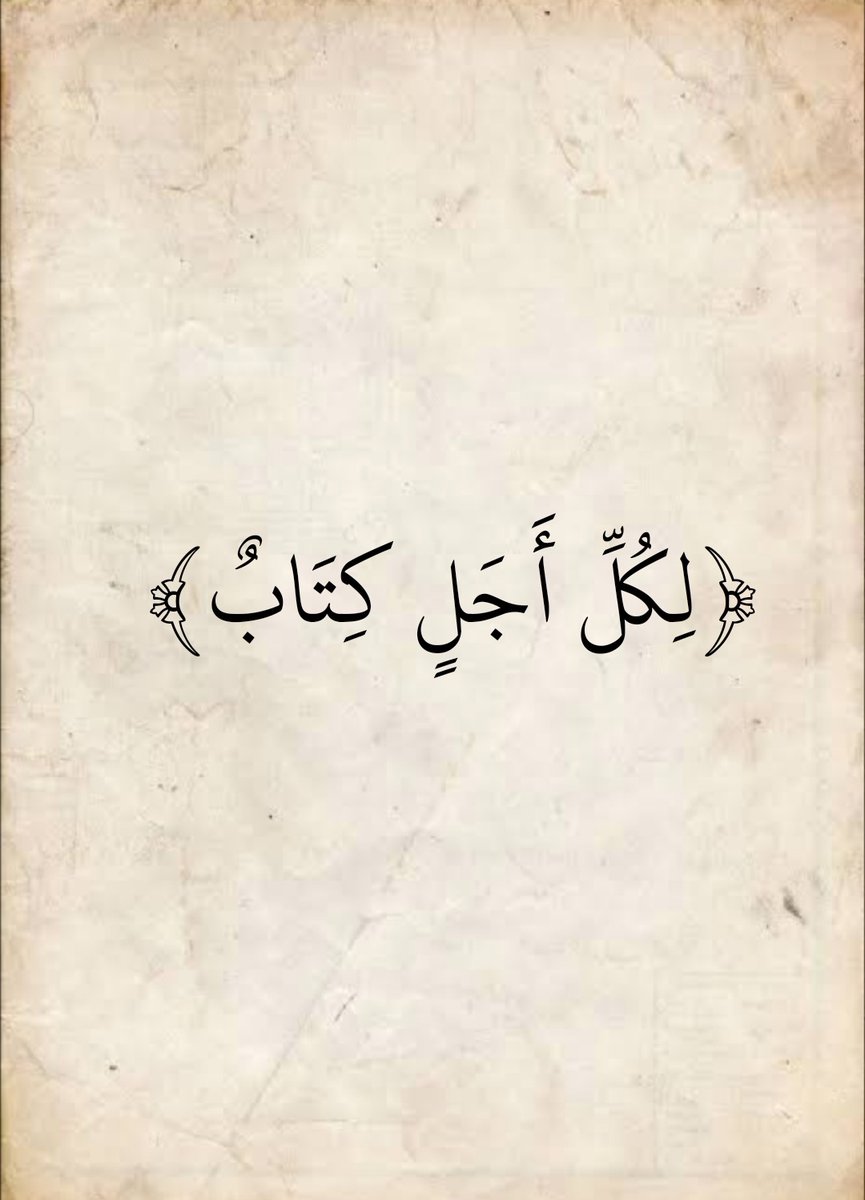 ﴿لِكُلِّ أَجَلٍ كِتَابٌ﴾